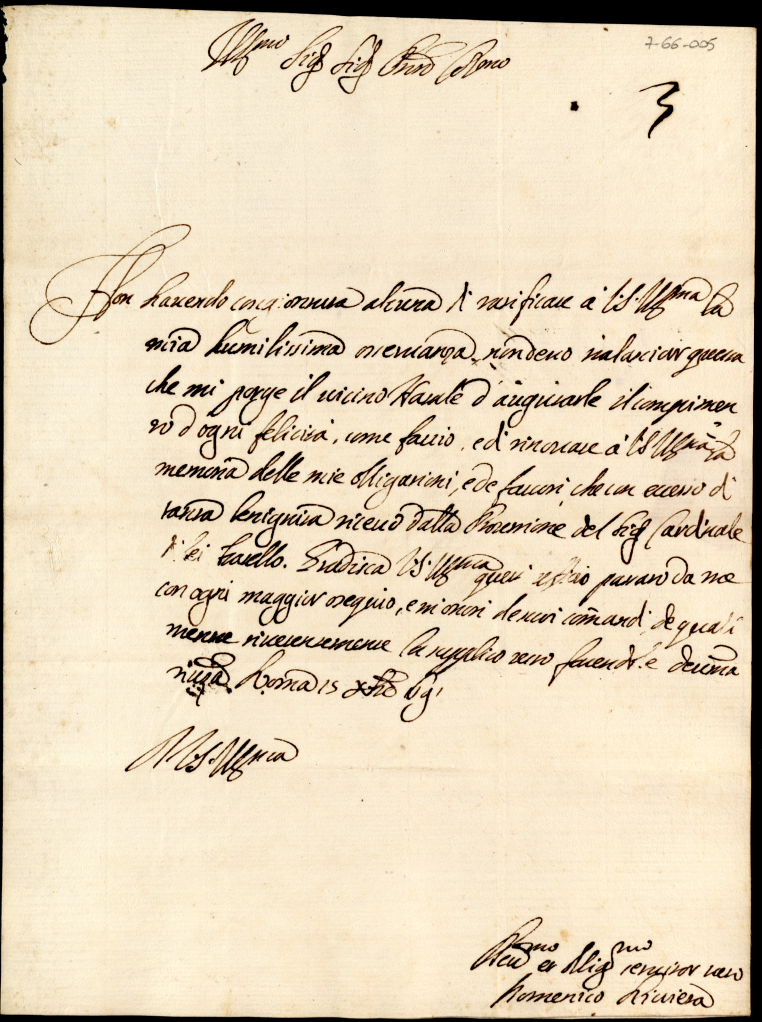 7-66-005
Ill.mo Sig.r Sig.r P.ron Col.mo
3
Non havendo congiontura alcuna di ratificare à V.S. Ill.ma la
mia humilissima osservanza, non devo tralasciar questa
che mi porge il vicino Natale d'augurarle il compimen
to d'ogni felicità, come faccio, e di rinovare à V.S. Ill.ma la
memoria delle mie obligationi, e de favori che con eccesso di
tanta benignità ricevo dalla Protettione del Sig.r Cardinale
di lei fratello. Gradisca V.S. Ill.ma questi
con ogni maggior ossequio, e mi onori de suoi comandi, de quali
mente riverentemente la supplico
Roma 15 Xbre
Di V.S. Ill.ma
Dev.mo et Oblig.mo servitor vero
Domenico Riviera